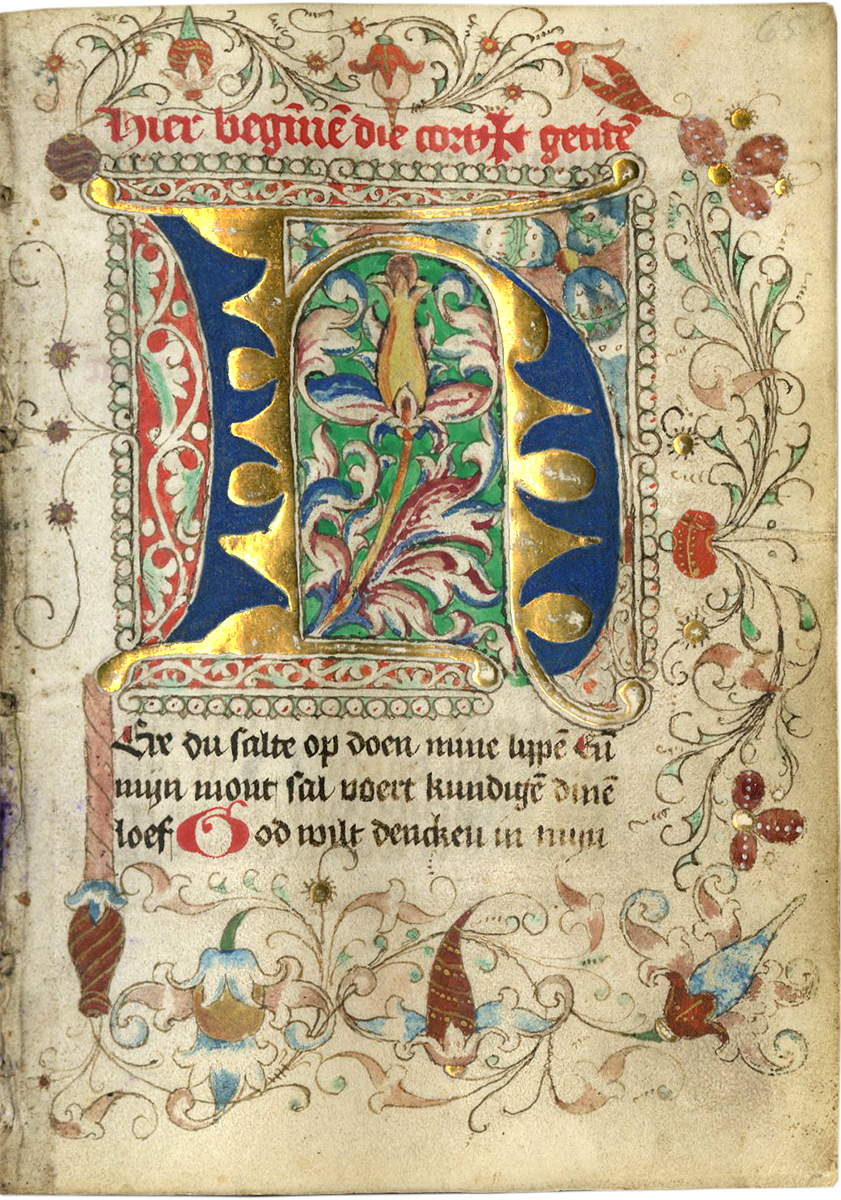 65
hier begīnē die corte + getitē
H
Ere du salte op doen mine lypē Eñ
mijn mont sal voert kundigē dinē
loef God wilt dencken in mijn